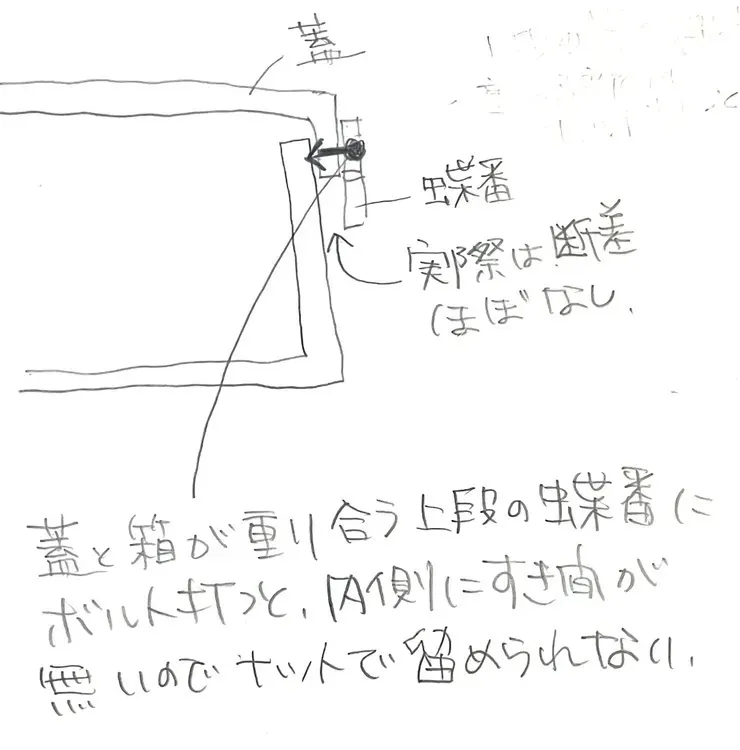 蓋
蝶番
実際は断差
ほぼなし.
蓋と箱が重り合う上段の蝶番に
ボルト打つと、内側にすき間が
無いのでナットで留められない.